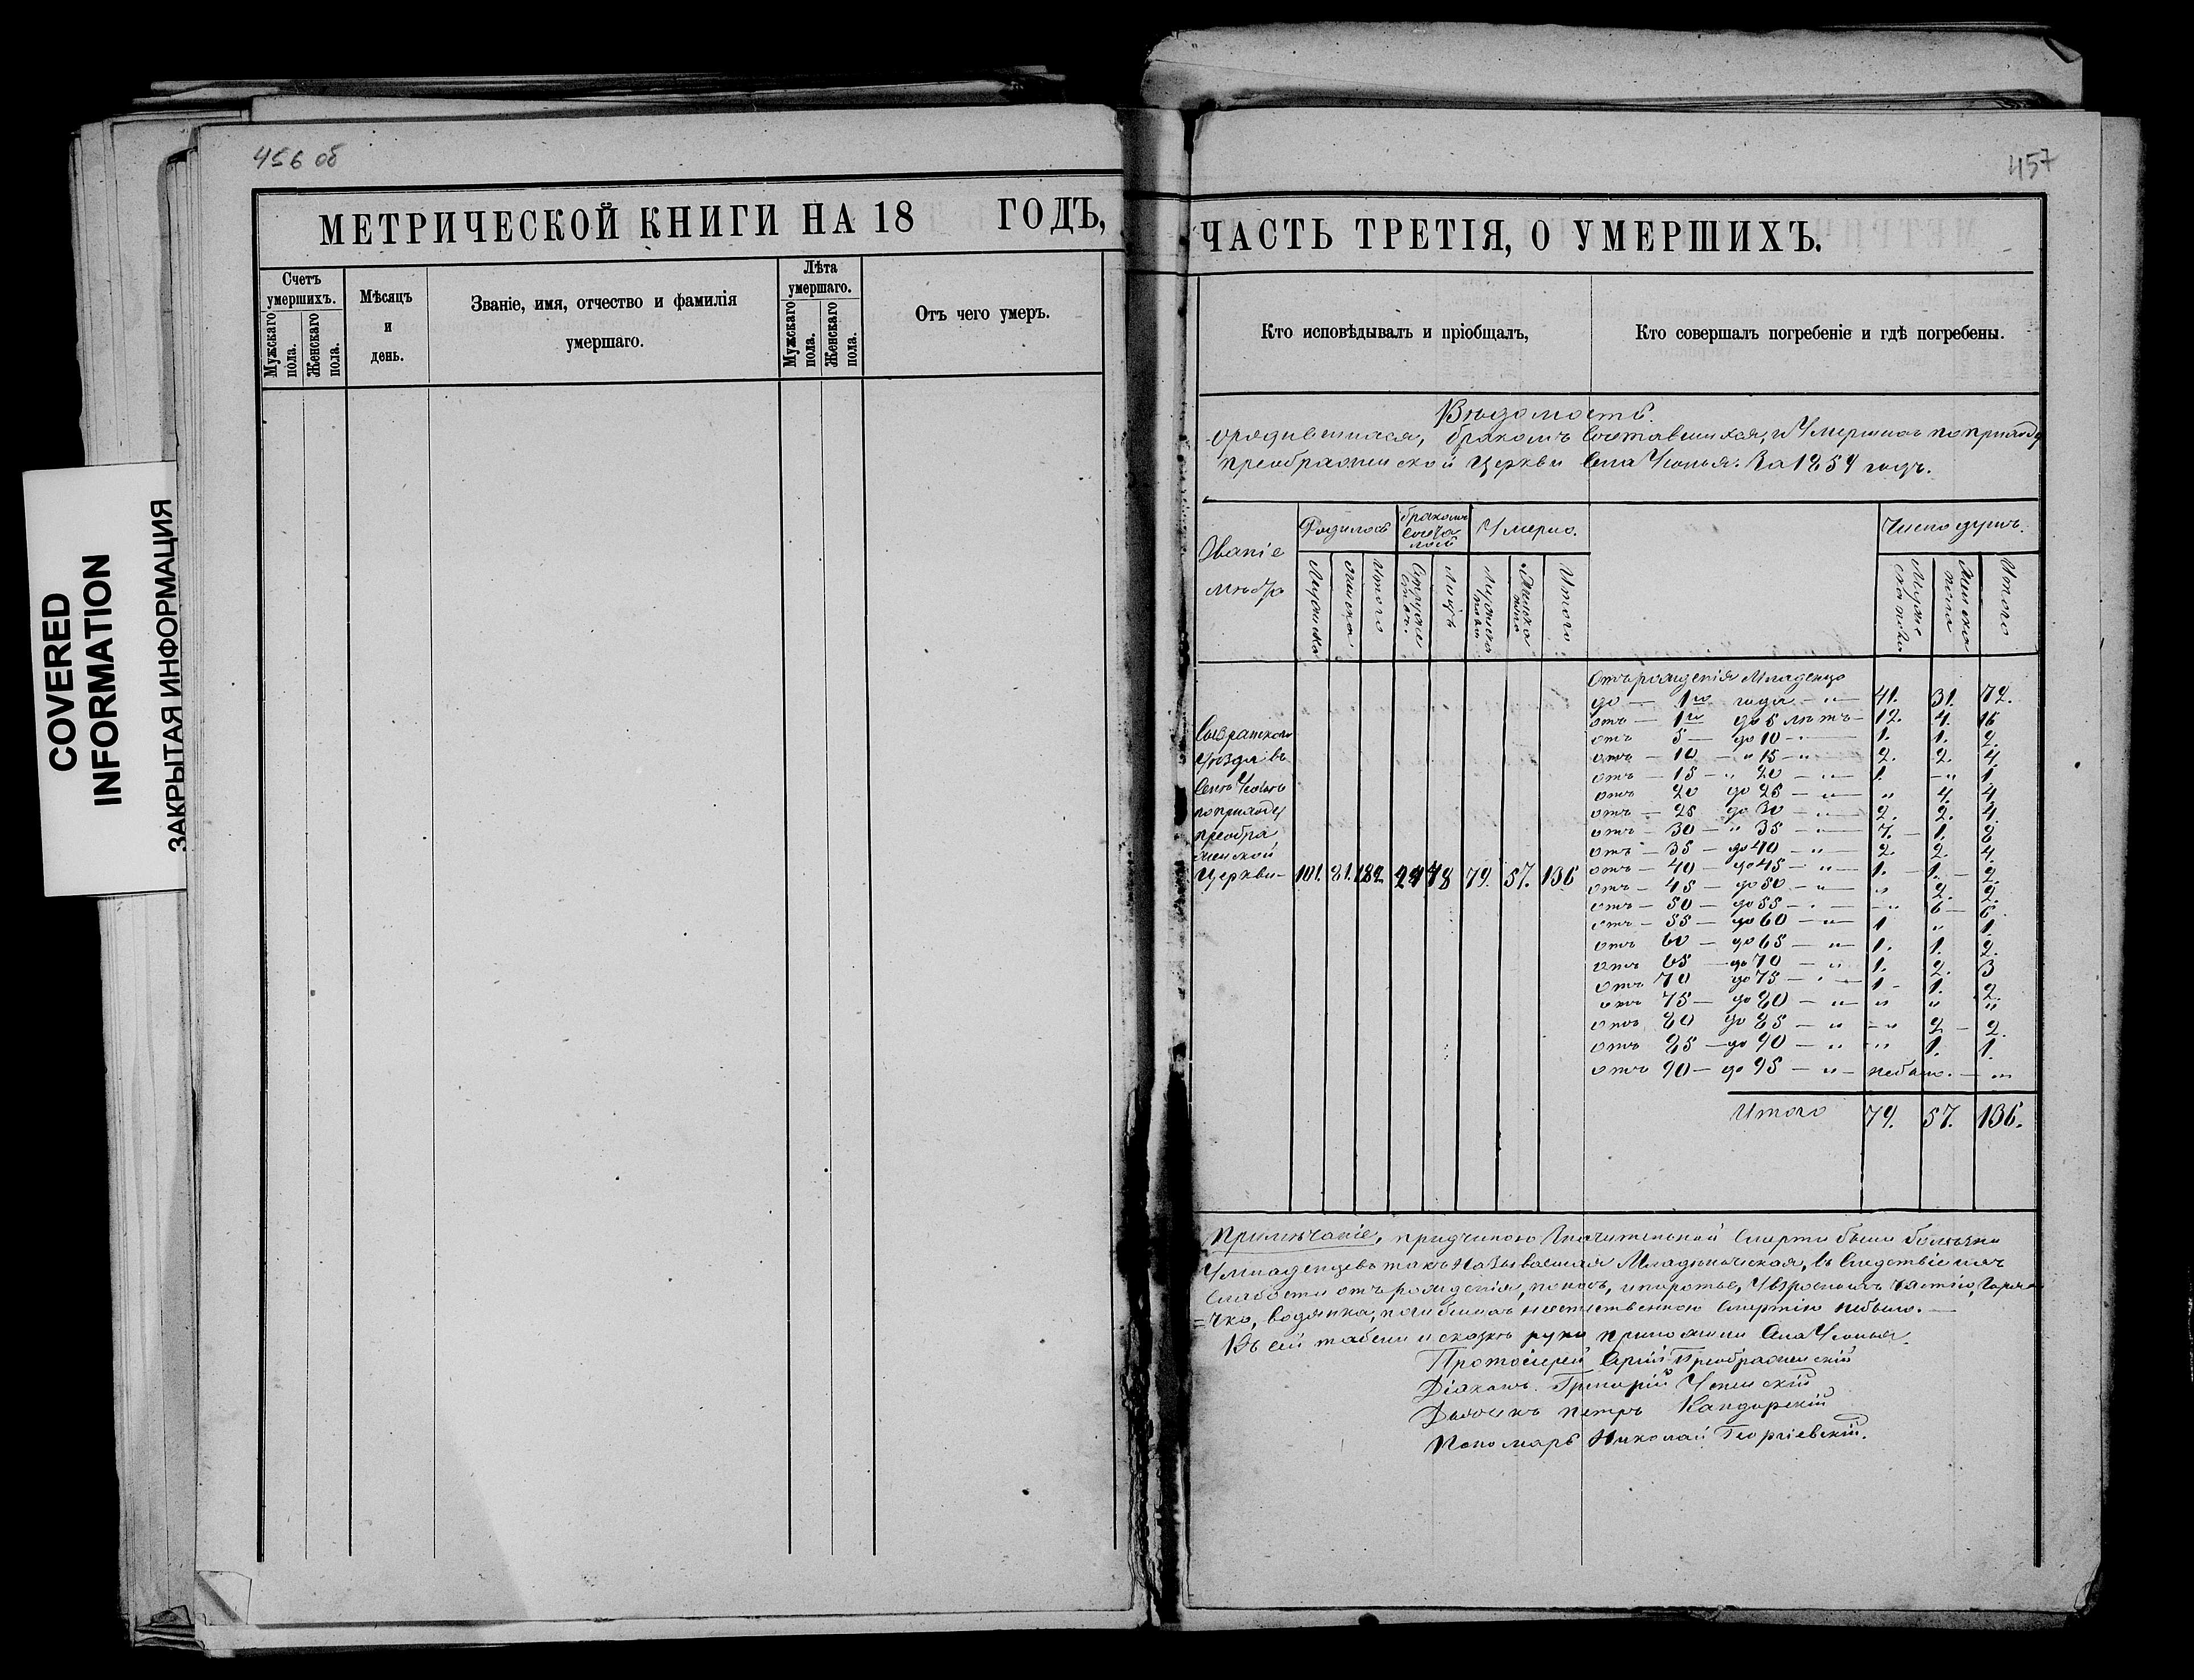 456 об
МЕТРИЧЕСКОЙ КНИГИ НА 18 ГОДЪ,
Счетъ умершихъ.
Мужскаго пола.
Женскаго пола.
Мѣсяцъ и день.
Званіе, имя, отчество и фамилія умершаго.
Лѣта умершаго.
Мужскаго пола.
Женскаго пола.
Отъ чего умеръ.
COVERED
INFORMATION
ЗАКРЫТАЯ ИНФОРМАЦИЯ
457
ЧАСТЬ ТРЕТІЯ, О УМЕРШИХЪ.
Кто исповѣдывалъ и пріобщалъ,
Кто совершалъ погребеніе и гдѣ погребены.
Вѣдомость
бракомъ и Умершихъ по приходу
преображенской Церкви За 1854 годъ.
Званіе
Родилось
бракомъ
Умерло.
Число душъ.
Итого
Лицъ
Итого
Итого
уѣзда въ
по приходу
преобра
женской
Церкви — 101. 81. 182. 24 48 79. 57. 136
Отъ рожденія Младенцо
до — 1го года — „ — 41. 31. 72.
отъ — 1го до 5 лѣтъ — 12. 4. 16
отъ 5 — до 10 — 1. 1. 2.
отъ — 10 — „ 15 — „ 2. 2. 4.
отъ — 15 — „ 20 — „ — 1. — „ 1.
отъ 20 до 25 — „ — „ 4. 4.
отъ — 25 до 30 — „ — 2. 2. 4.
отъ — 30 — „ 35 — „ — 7. — 1. 8.
отъ — 35 — до 40 — „ — 2. 2. 4.
отъ — 40 — до 45 — „ — 1. — 1. — 2.
отъ — 45 — до 50 — „ — „ 2. 2.
отъ — 50 — до 55 — „ — „ 6 — 6.
отъ — 55 — до 60 — „ — 1 „ 1.
отъ 60 — до 65 — „ — 1. 1. 2.
отъ 65 — до 70 — „ 1. 2. 3
отъ 70 до 75 — „ — 1 — 1. 2.
отъ 75 — до 80 — „ — „ „ „
отъ 80 до 85 — „ — „ 2 — 2.
отъ 85 — до 90 — „ „ 1. 1.
отъ 90 — до 95 — „ — небыло. — „
Итого 79. 57. 136.
Примѣчаніе, смерти были болѣзни
У младенцевъ такъ называемая Младенческая, въ слѣдствіе ихъ
слабости отъ рожденія, поносъ,
водянка, смертію небыло. —
Къ сей руки приложили
Протоіерей Преображенскій
Діаконъ Григорій Успенскій
Дьячекъ Петръ Кандорскій
Пономарь Николай Георгіевскій.